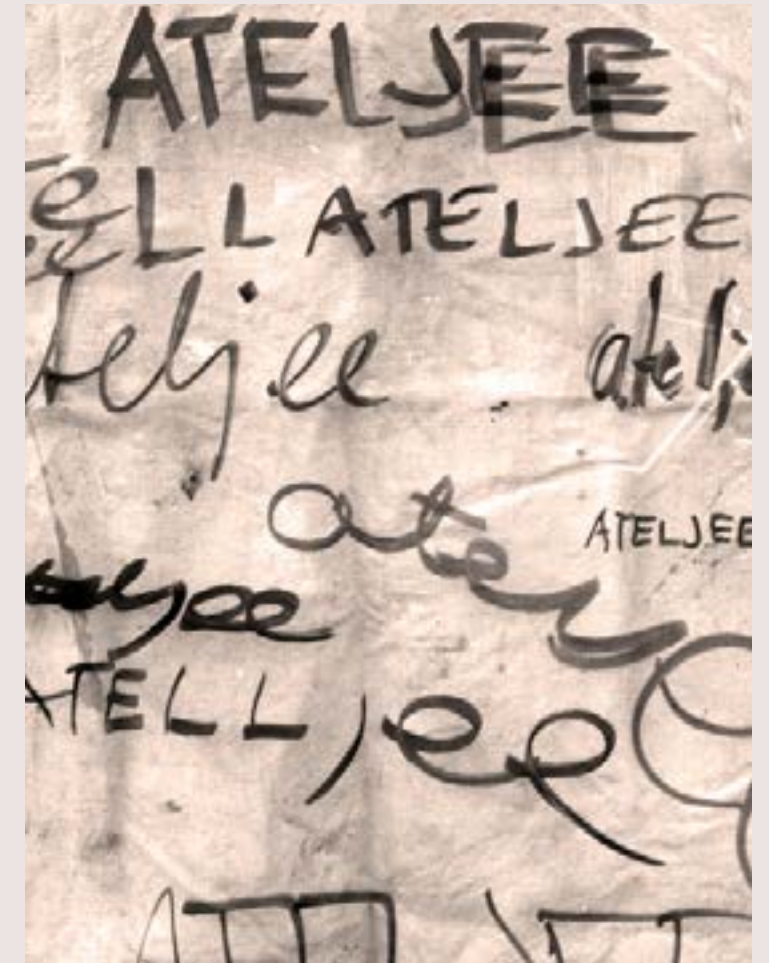 ATELJEE
ELL ATELJEE
teljee atelje
ate
ATELJEE
eljee
ATELLjee